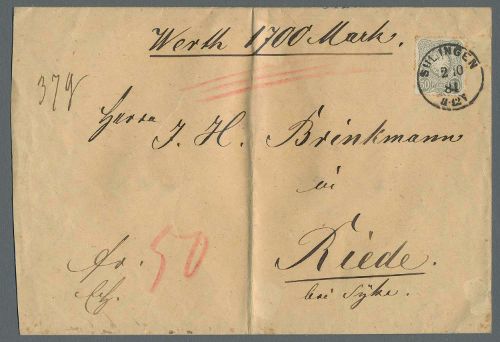 Werth 1700 Mark.
SULINGEN
2 10
81
11-12 V
379
Herrn J. H. Brinkmann
in
Riede.
bei Syke.
fr.
50